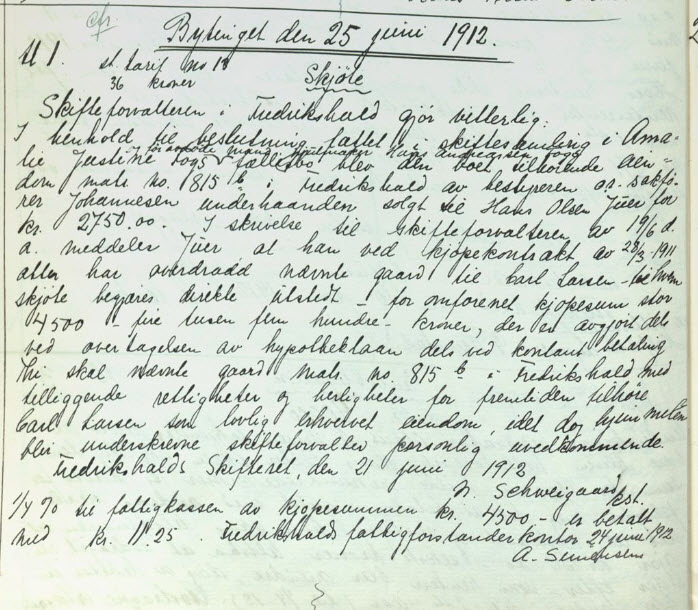 cfr.
Bytinget den 25 juni 1912.
N 1. st. tarif no 18
36 kroner Skjöte
Skifteforvalteren i Fredrikshald gjör vitterlig:
I henhold til beslutning fattet i skiftesamling i Ama-
lie Justine Fogs og forsvundne mand Hans Andreassen Fogs
fællesbo blev den boet tilhörende aen-
dom matr. no. 815 b i Fredrikshald av bestyreren or. sakfö-
rer Johannesen underhaanden solgt til Hans Olsen Juer for
kr. 2750.00. I skrivelse til skifteforvalteren av 19/6 d.
a. meddeler Juer at han ved kjöpekontrakt av 28/3 1911
atter har overdradd nævnte gaard til Carl Larsen – til hvem
skjöte begjæres direkte utstedt – for omforenet kjöpesum stor
4500 – fire tusen fem hundre – kroner, der er avgjort dels
ved overtagelsen av hypotheklaan dels ved kontant betaling
Thi skal nævnte gaard matr. no. 815 b i Fredrikshald med
tilliggende rettigheter og herligheter for fremtiden tilhöre
Carl Larsen som lovlig erhvervet eiendom, idet dog hjemmelen
blir underskrevne skifteforvalter personlig uvedkommende.
Fredrikshalds Skifteret, den 21 juni 1912
N. Schweigaard kst.
1/4 % til fattigkassen av kjöpesummen kr. 4500,– er betalt
med kr. 11.25. Fredrikshalds fattigforstanderkontor 24 juni 1912
A.